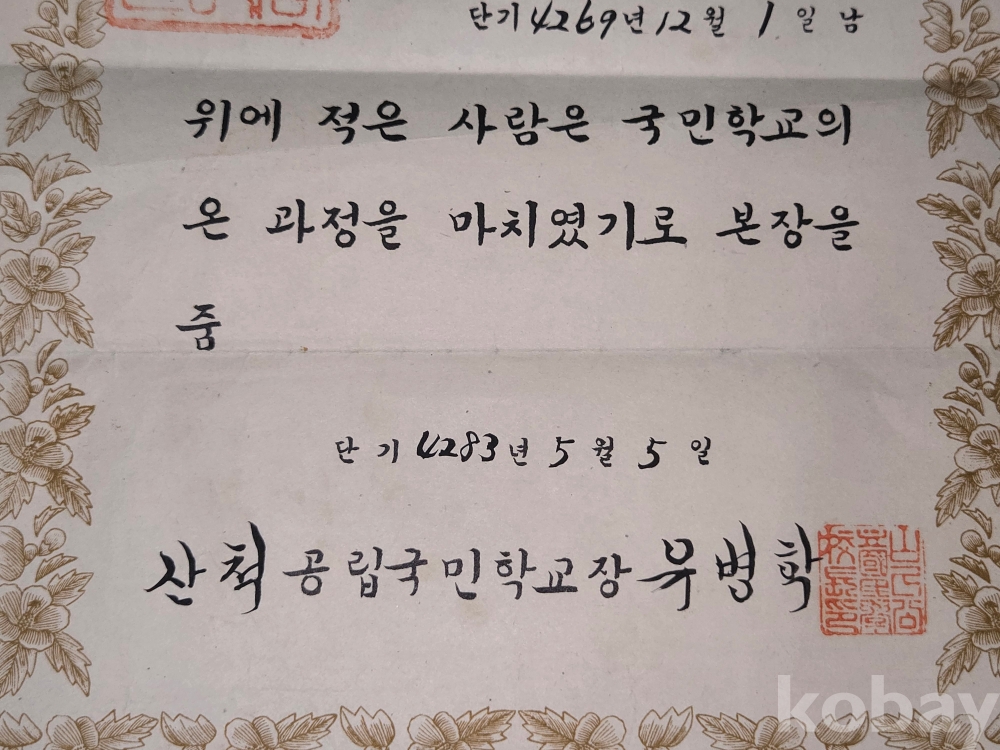 단기 4269년 12월 1일 남
위에 적은 사람은 국민학교의
온 과정을 마치였기로 본장을
줌
단기 4283년 5월 5일
산척 공립국민학교장 유병학
kobay